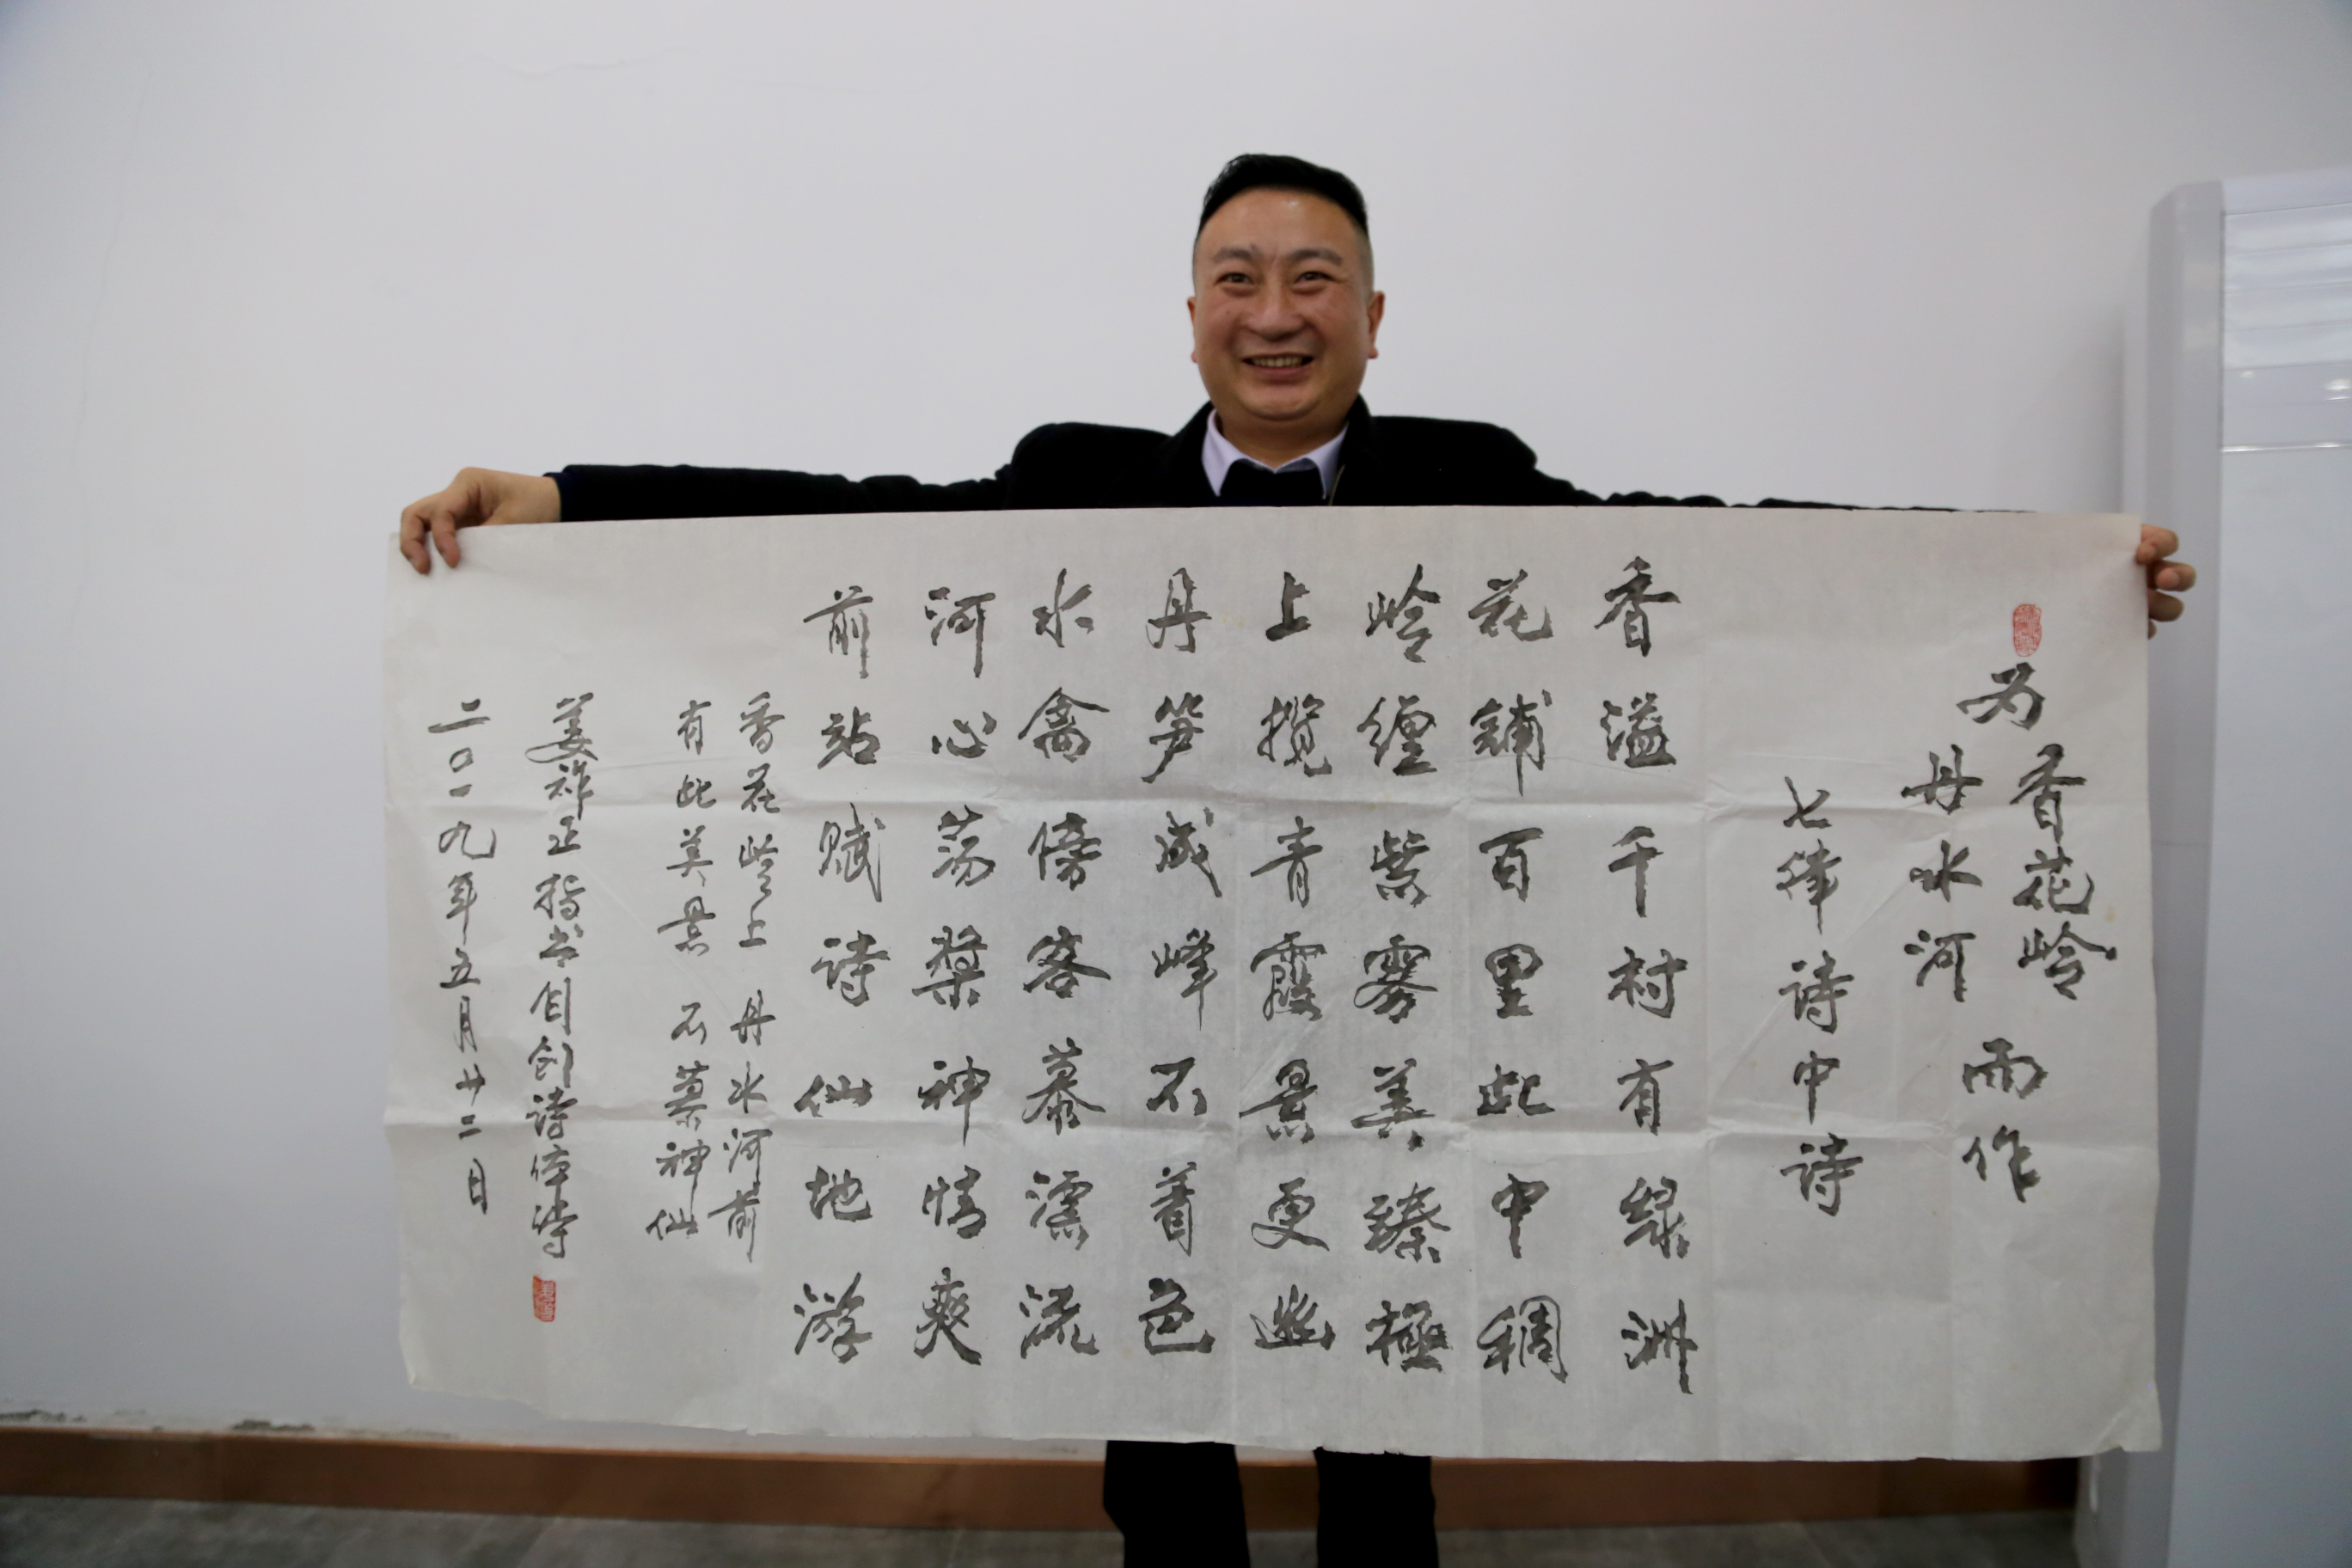 为香花岭
丹水河
而作
七律诗中诗
香溢千村有绿洲
花铺百里起中稠
岭缠紫雾美臻極
上揽青霞景更幽
丹笋成峰不着色
水禽傍客慕濡流
河心荡桨神情爽
前站赋诗仙地游
香花岭上 丹水河前
有此美景 不慕神仙
姜祚正指书自创诗体诗
二〇一九年五月廿二日